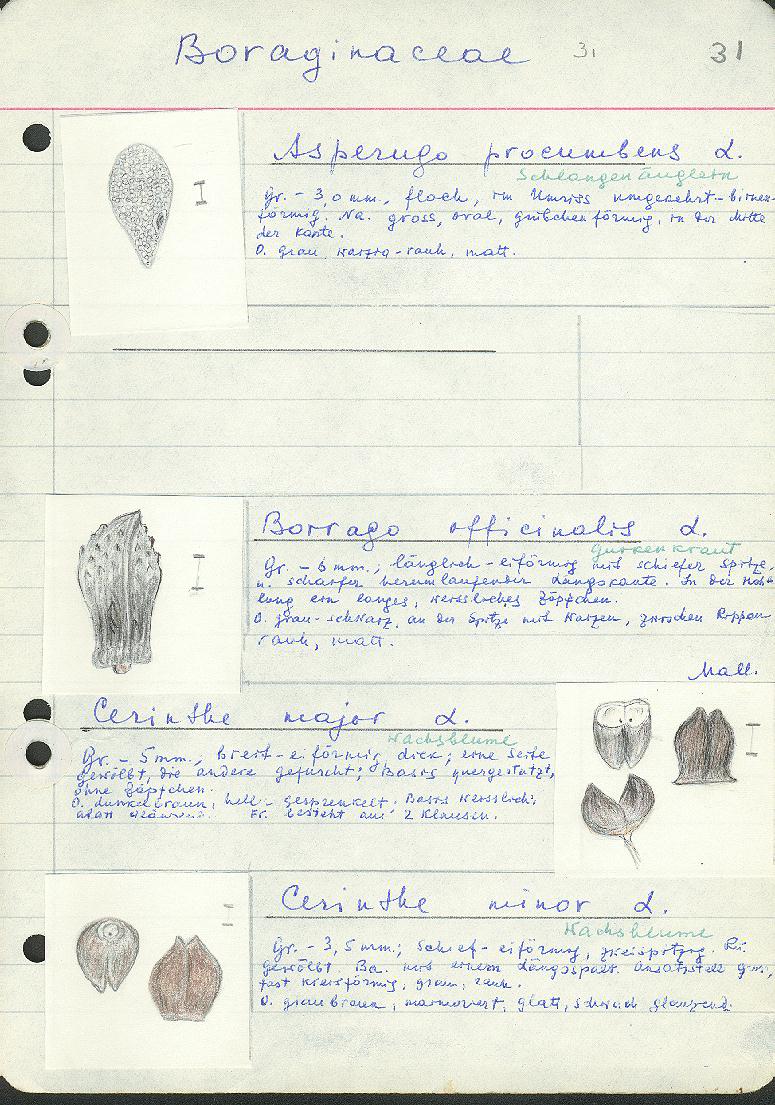 Boraginaceae 31 31
Asperugo procumbens L.
Schlangenäuglein
Gr. - 3,0 mm., flach, im Umriss umgekehrt-birnen-
förmig. Na. gross, oval, grübchenförmig, in der Mitte
der Kante.
O. grau, warzig-rauh, matt.
Borrago officinalis L.
Gurkenkraut
Gr. - 6 mm., länglich-eiförmig mit schiefer Spitze.
u. scharfer herumlaufender Längskante. In der Höh-
lung ein langes, weissliches Zäpfchen.
O. grau-schwarz, an der Spitze mit Warzen, zwischen Rippen
rauh, matt.
Cerinthe major L.
Wachsblume
Gr. - 5 mm., breit-eiförmig, dick; eine Seite
gewölbt, die andere gefurcht; Basis quergestutzt,
ohne Zäpfchen.
O. dunkelbraun, hell-gesprenkelt. Basis weisslich;
Fr. besteht aus 2 Klausen.
Cerinthe minor L.
Wachsblume
Gr. - 3,5 mm.; schief-eiförmig, zweispitzig. Rü.
gewölbt. Ba. mit einem Längsspalt. Ansatzstelle
fast kreisförmig, grau, rauh.
O. graubraun, marmoriert, glatt, schwach glänzend.